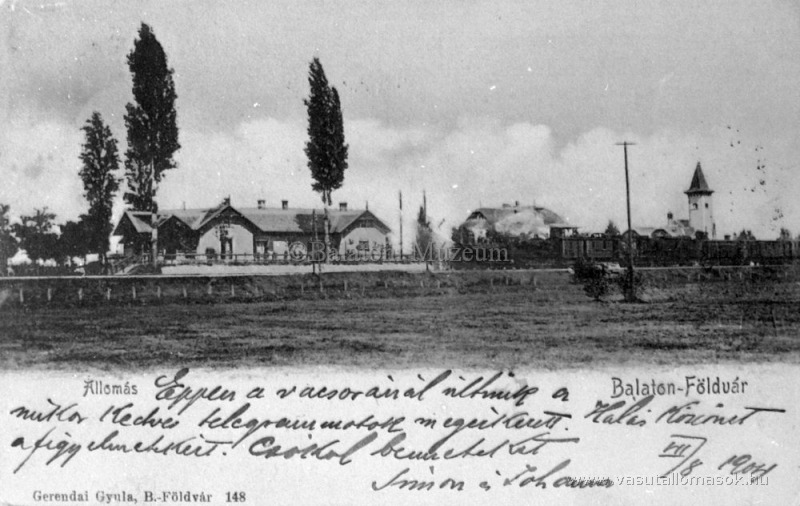 © Balaton Múzeum
Állomás
Balaton-Földvár
Éppen a vacsoránál ültünk a
mikor kedves telegrammotok megérkezett. Hálás köszönet
a figyelmetekért. Csókol benneteket
VII/8 1904
Simon és Johanna
© www.vasutallomasok.hu
Gerendai Gyula, B.-Földvár 148